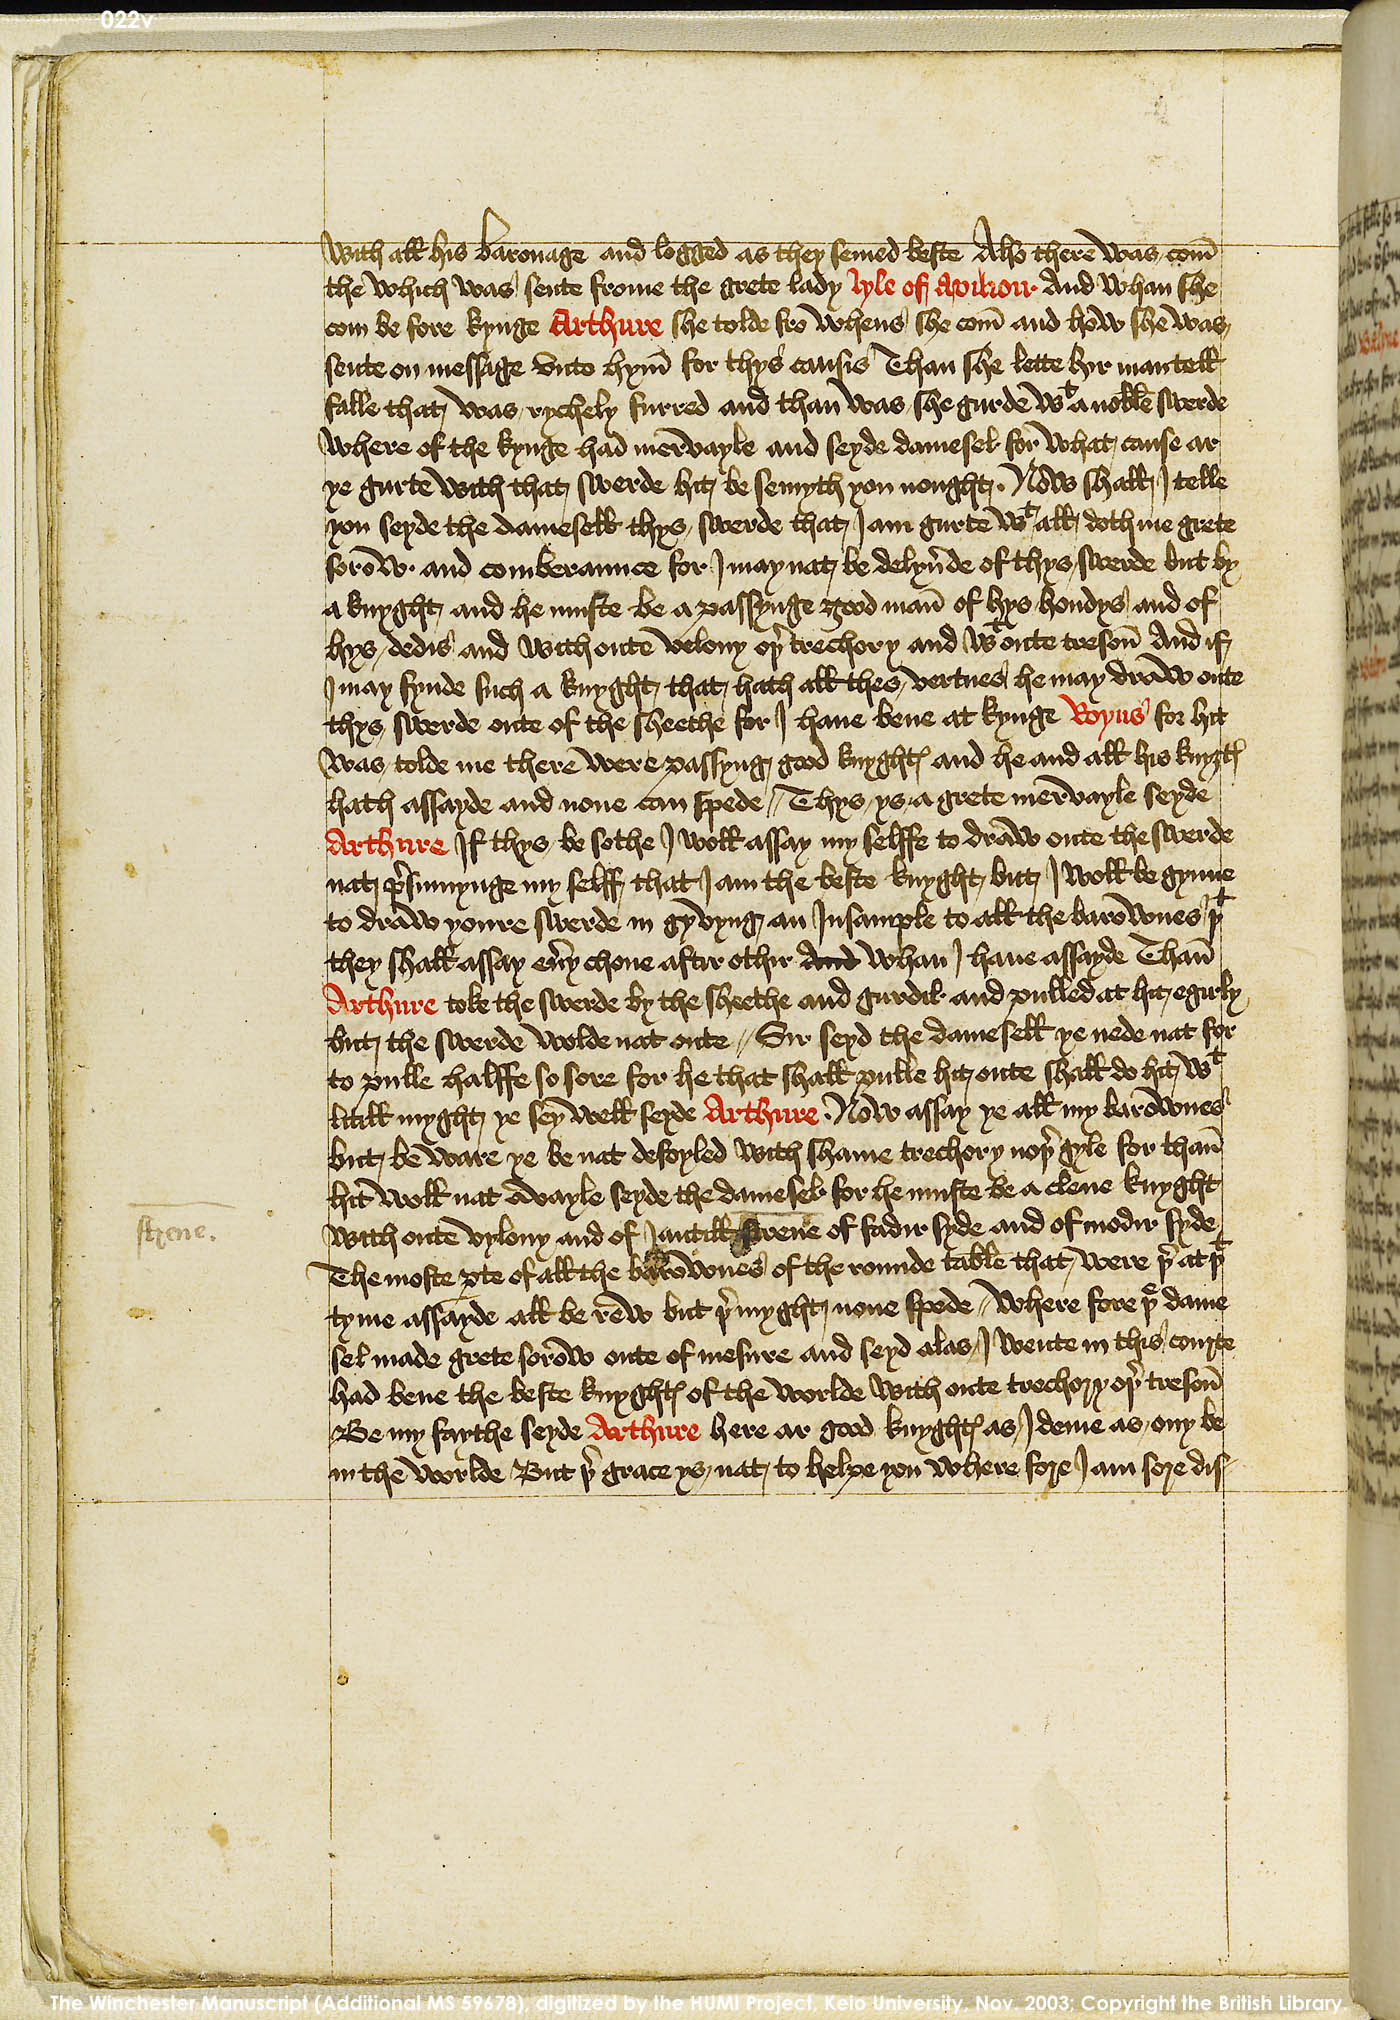 022v
With all his baronage and logged as they semed beste Also there was com̄
the which was sente frome the grete lady lyle of Avilion And whan she
com be fore kynge Arthure she tolde fro whens she com̄ and how she was
sente on message vnto hym̄ for thys causis Than she lette hir mantell
falle that was rychely furred and than was she gurde wᵗ a noble swerde
where of the kynge had mervayle and seyde damesel for what cause ar
ye gurte with that swerde hit be semyth you nought . Now shall I telle
you seyde the damesell thys swerde that I am gurte wᵗ all doth me grete
sorow and comberaunce for I may nat be delyūde of thys swerde but by
a knyght and he muste be a passynge good man̄ of hys hondys and of
hys dedis and with oute velony oþ̉ trechory and wᵗ oute treson̄ And if
I may fynde such a knyght that hath all thes vertues he may draw oute
thys swerde oute of the sheethe for I haue bene at kynge Royns for hit
was tolde me there were passyng good knyghtꝭ and he and all his knyȝtꝭ
hath assayde and none can spede // Thys ys a grete mervayle seyde
Arthure If thys be sothe I woll assay my selffe to draw oute the swerde
nat p̉sumynge my selff that I am the beste knyght but I woll be gynne
to draw youre swerde in gyvyng an Insample to all the barownes þᵗ
they shall assay eūy chone aftir othir And whan I haue assayde Than̄
Arthure toke the swerde by the sheethe and gurdil and pulled at hit egirly
but the swerde wolde nat oute // Sir seyd the damesell ye nede nat for
to pulle halffe so sore for he that shall pulle hit oute shall do hit wᵗ
litill myght ye sey well seyde Arthure . Now assay ye all my barownes
but be ware ye be nat defoyled with shame trechory noþ̉ gyle for than̄
hit woll nat avayle seyde the damesel for he muste be a clene knyght
with oute vylony and of Jantill strene of fadir syde and of modir syde
strene.
The moste ꝑte of all the barownes of the rounde table that were þ̉ at þᵗ
tyme assayde all be rew but þ̉ myght none spede // Where fore þᵉ dame
sel made grete sorow oute of mesure and seyd alas I wente in this courte
had bene the beste knyghtꝭ of the worlde with oute trechory oþ̉ treson̄
Be my faythe seyde Arthure here ar good knyghtꝭ as I deme as ony be
in the worlde But þ̉ grace ys nat to helpe you where fore I am sore dis
The Winchester Manuscript (Additional MS 59678), digitized by the HUMI Project, Keio University, Nov. 2003; Copyright the British Library.